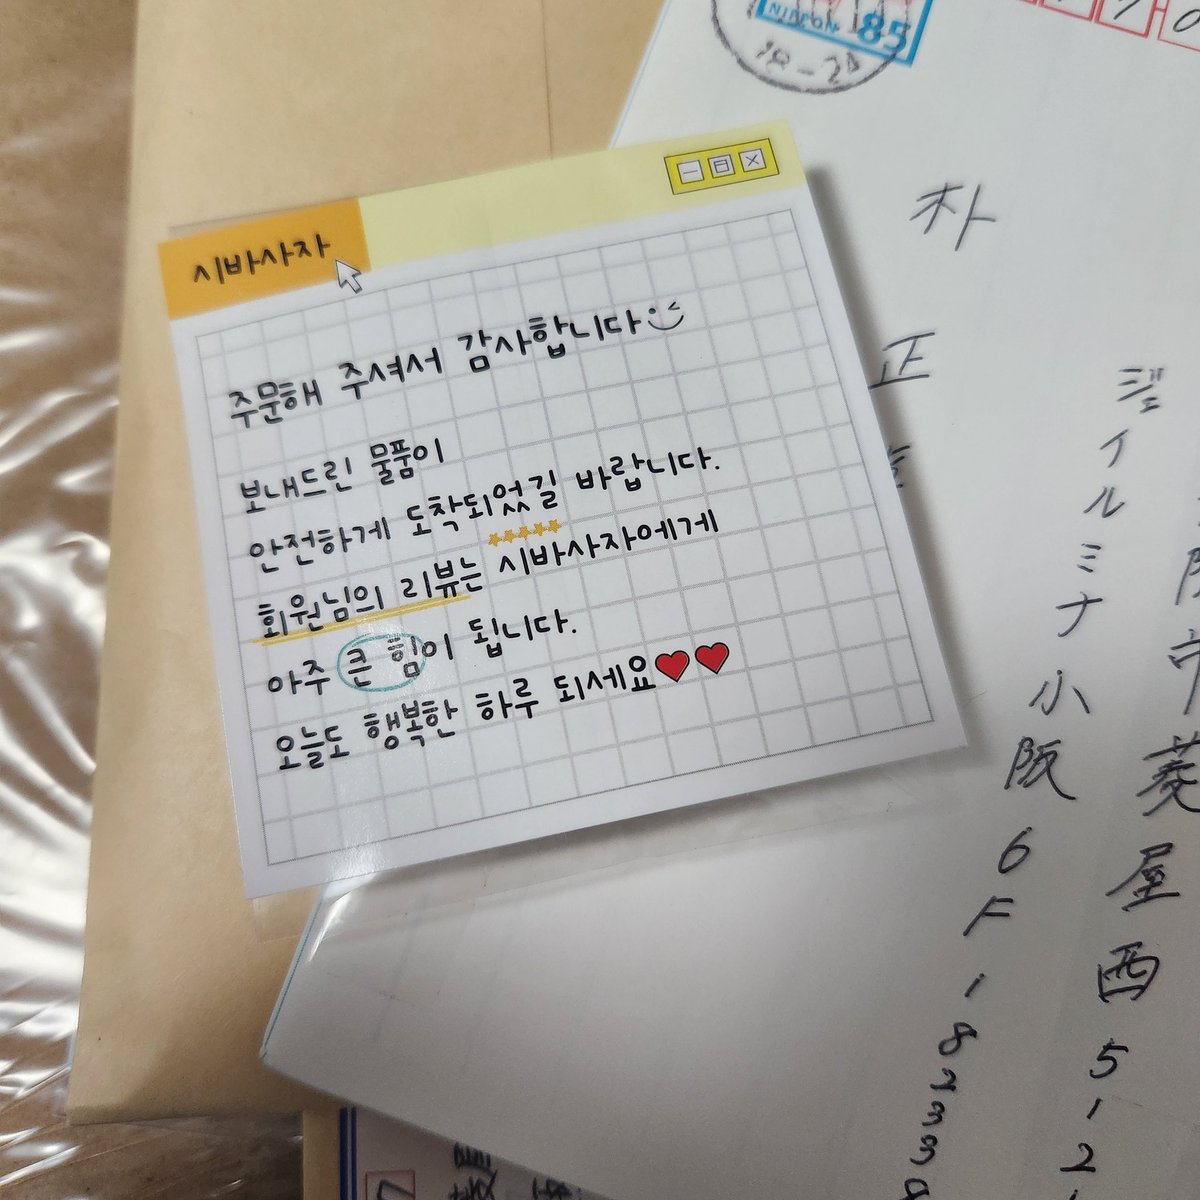 시바사자
주문해 주셔서 감사합니다
보내드린 물품이
안전하게 도착되었길 바랍니다.
회원님의 리뷰는 시바사자에게
아주 큰 힘이 됩니다.
오늘도 행복한 하루 되세요
NIPPON 85
朴
正
ジェイルミナ小阪6F18233
菱屋西512